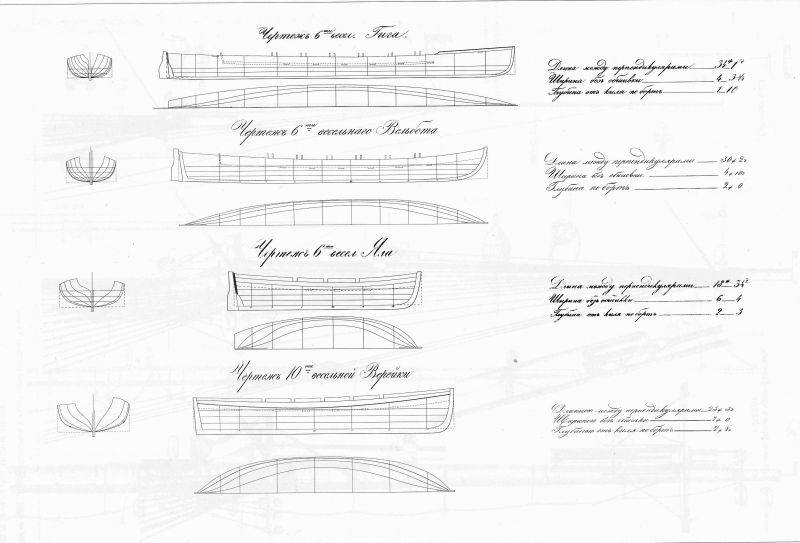 Чертежъ 6ти весел. Гига.
Длина между перпендикулярами 34ф 1д
Ширина безъ обшивки 4 3¼
Глубина отъ киля по бортъ 1 10
Чертежъ 6ти весельнаго Вельбота
Длина между перпендикулярами 30ф 2д
Ширина безъ обшивки 4ф 10д
Глубина по бортъ 2ф 0
Чертежъ 6ти весел Яла
Длина между перпендикулярами 18ф
Ширина безъ обшивки 6 4
Глубина отъ киля по бортъ 2 3
Чертежъ 10ти весельной Верейки
Длиною между перпендикулярами
Шириною безъ обшивки 7ф 0
Глубиною отъ киля по бортъ